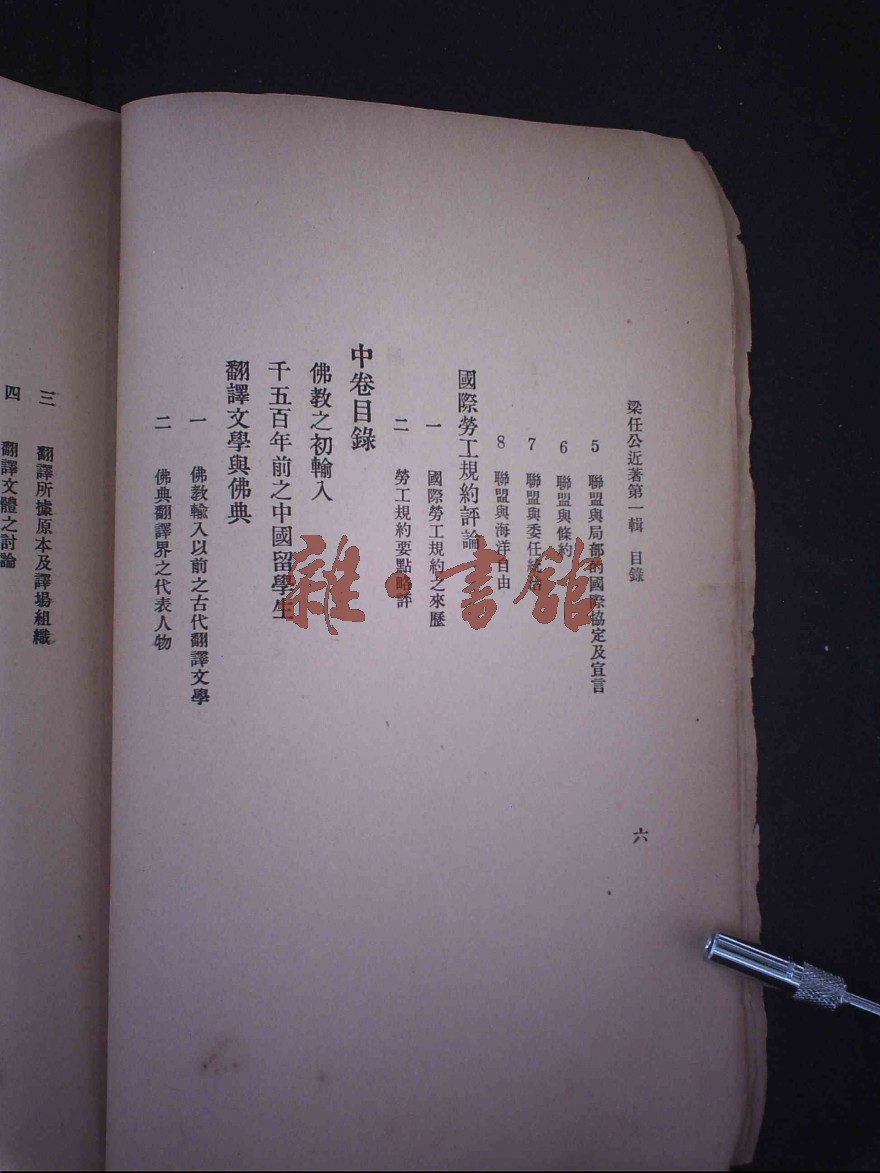 梁任公近著第一輯 目錄
六
5 聯盟與局部的國際協定及宣言
6 聯盟與條約
7 聯盟與委任統治
8 聯盟與海洋自由
國際勞工規約評論
一 國際勞工規約之來歷
二 勞工規約要點略評
中卷目錄
佛教之初輸入
千五百年前之中國留學生
翻譯文學與佛典
一 佛教輸入以前之古代翻譯文學
二 佛典翻譯界之代表人物
三 翻譯所據原本及譯場組織
四 翻譯文體之討論
雜·書館